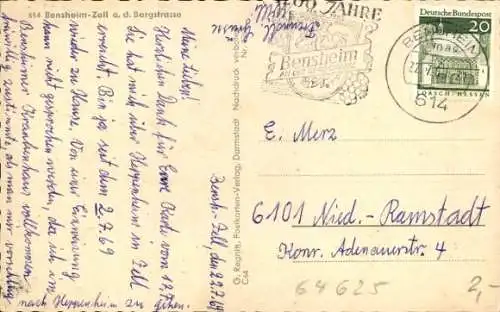 614 Bensheim-Zell a. d. Bergstrasse
Bensh.-Zell, den 22.7.69
Meine Lieben!
Herzlichen Dank für Eure Karte vom 17.7.
Die hat mich über Heppenheim in Zell
erreicht. Bin ja seit dem 2.7.69
wieder zu Hause. Von einer Einweisung
kann nicht gesprochen werden, da ich im
Bensheimer Krankenhaus vollkommen
freiwillig zustimmte, als man mir vorschlug
nach Heppenheim zu gehen.
G. Regnitt, Postkarten-Verlag, Darmstadt Nachdruck verboten
C64
JAHRE
Bensheim
Deutsche Bundespost
20
LORSCH HESSEN
BENSHEIM
614
E. Merz
6101 Nied.-Ramstadt
Konr. Adenauerstr. 4
64625
2,-